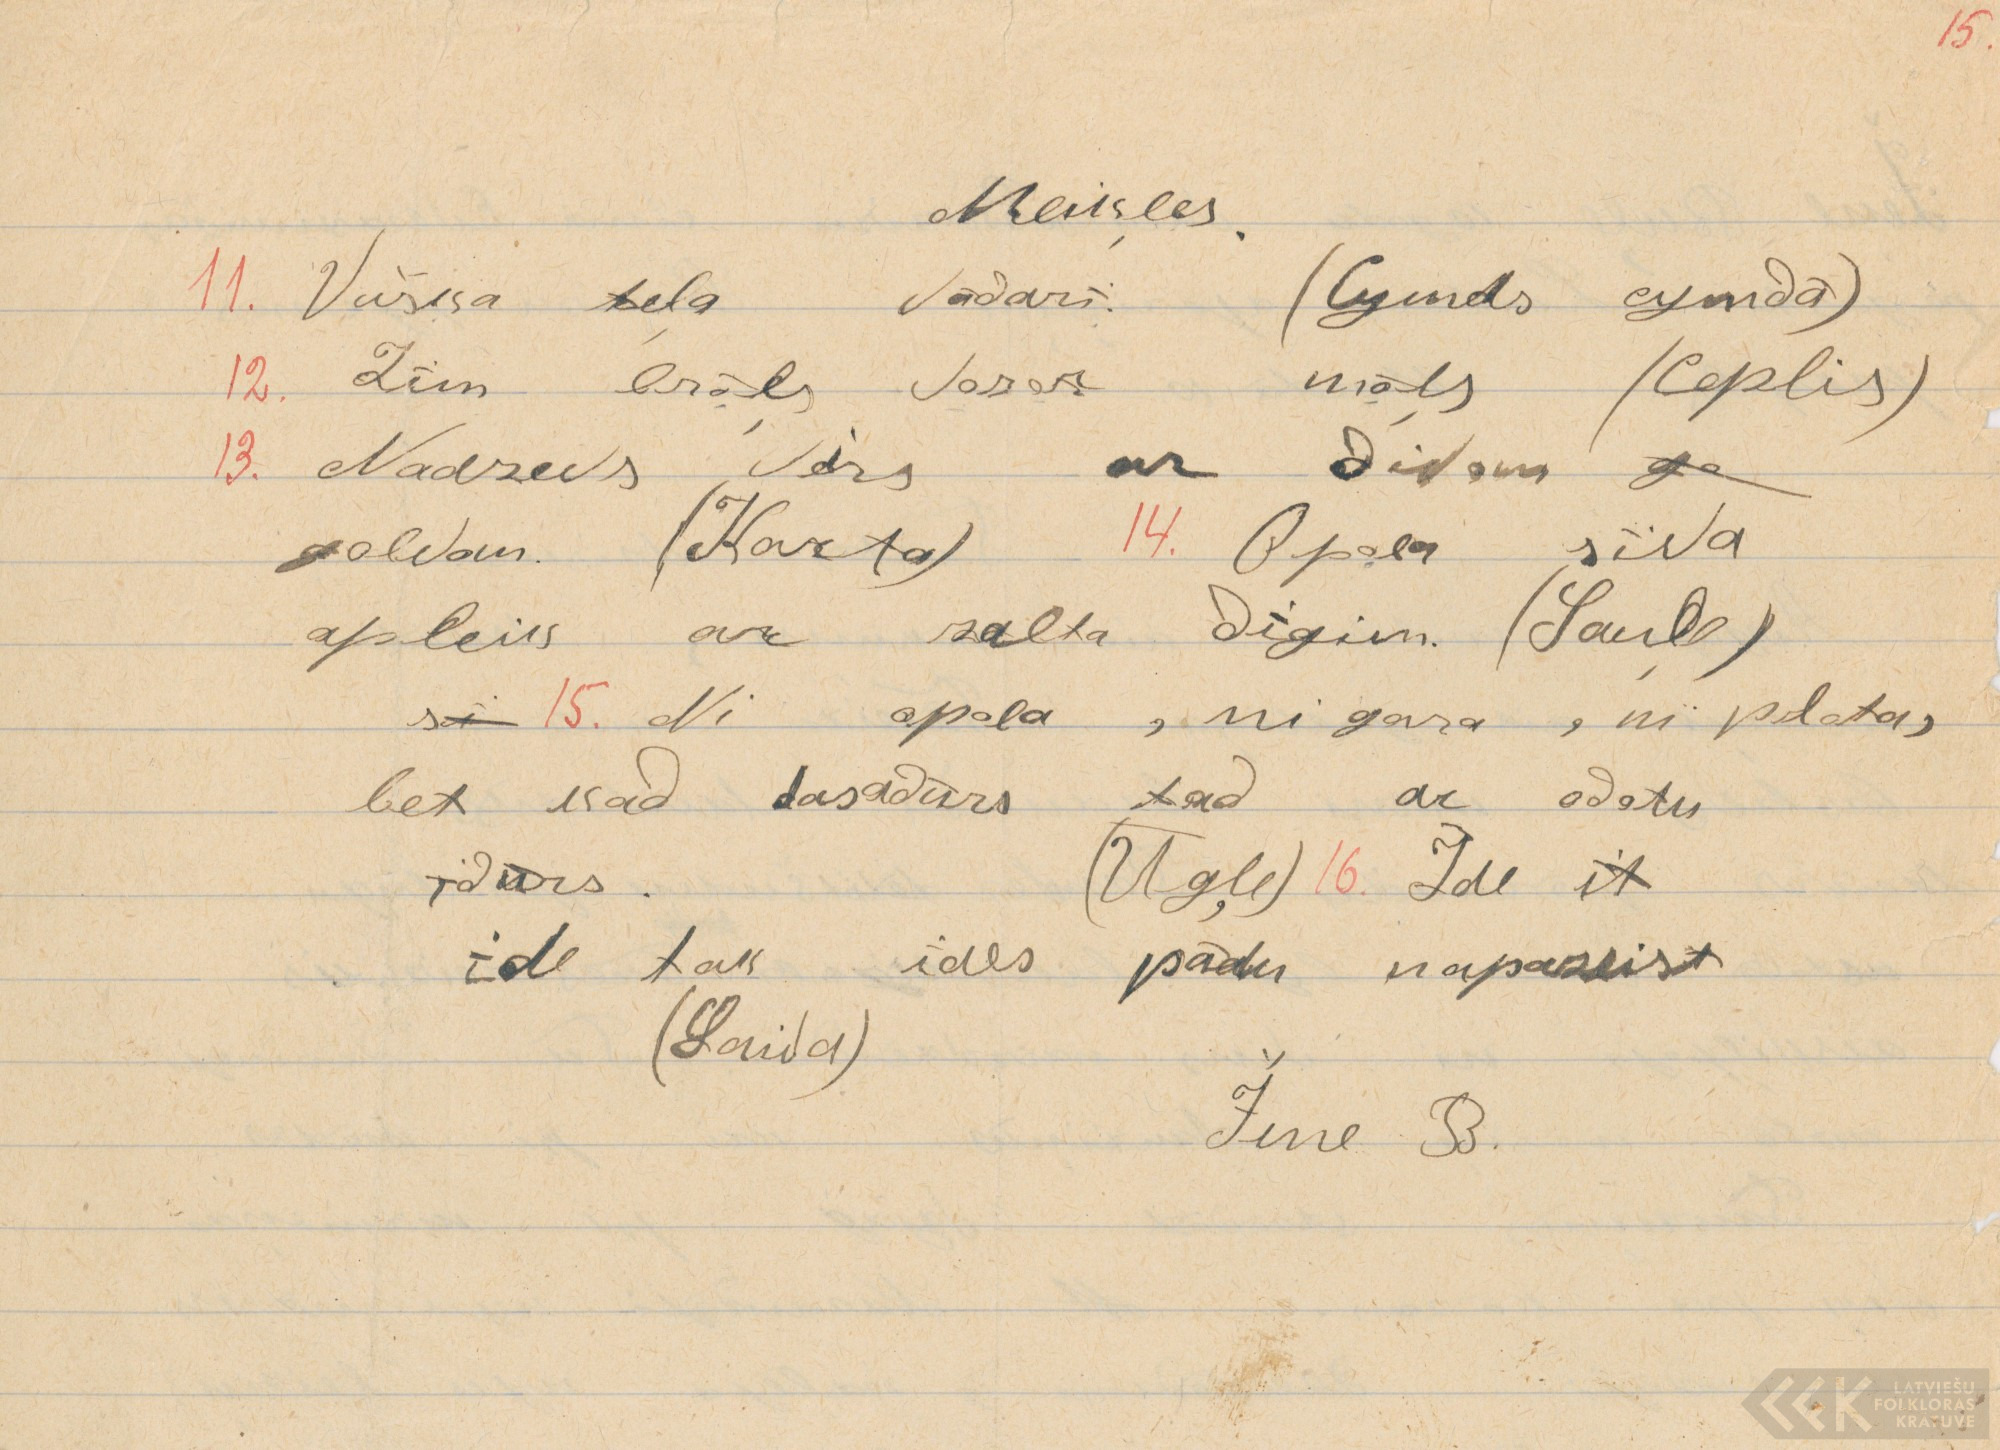 15.
Meikļes.
11. Vuška teļa vādarī. (Cymds cymdā)
12. Zīm brāļs vosor māļs (Ceplis)
13. Nadzeivs vīrs ar divom ga
golvom. (Karta) 14. Opola sīva
apleik ar zalta digim. (Sauļe)
si 15. Ni opola, ni gara, ni plota,
bet kad dasadūrs tad ar odotu
idūrs. (Ūgļe) 16. Īde it
īde tak īdes pādu napazeist
(Laiva)
Žune B.
LATVIEŠU
FOLKLORAS
KRATUVE